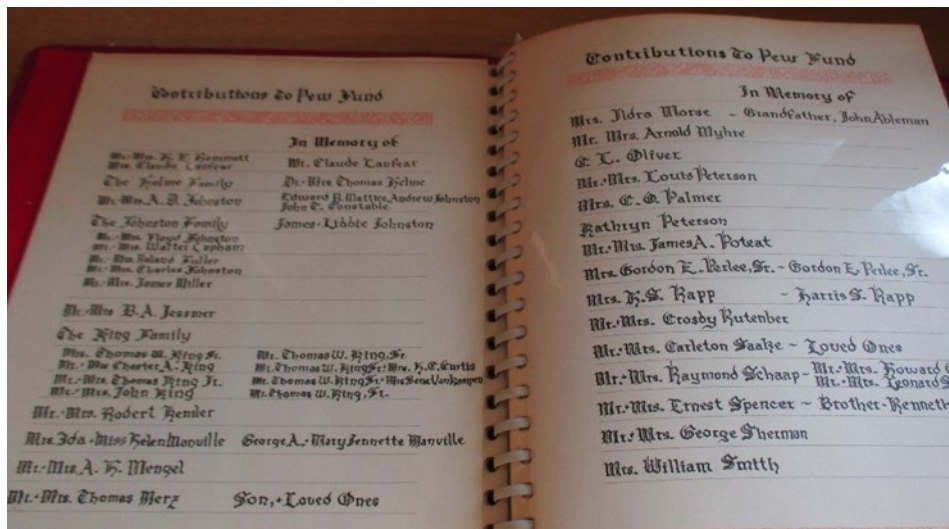 Contributions To Pew Fund
In Memory of
Mr. Mrs. H. E. Hemmett
Mrs. Claude Lanfear Mr. Claude Lanfear
The Helme Family Dr. Mrs Thomas Helme
Mr. Mrs. A. D. Johnston Edward B. Mattice, Andrew Johnston
John T. Constable
The Johnston Family James + Libbie Johnston
Mr. Mrs. Floyd Johnston
Mr. Mrs. Walter
Mr. Mrs. Roland Fuller
Mr. Mrs. Charles Johnston
Mr. Mrs. James Miller
Mr. Mrs B.A. Jessmer
The King Family
Mrs. Thomas W. King Sr. Mr. Thomas W. King, Sr.
Mr. Mrs Chester A. King Mr. Thomas W. King Sr. Mrs. H.C. Curtis
Mr. Mrs. Thomas King Jr. Mr. Thomas W. King, Sr. Mrs
Mr. Mrs. John King Mr. Thomas W. King, Sr.
Mr. Mrs. Robert Kemler
Mrs Ida + Miss Helen Manville George A. + Mary Jennette Manville
Mr. Mrs A. H. Mengel
Mr. + Mrs. Thomas Merz Son, + Loved Ones
Contributions To Pew Fund
In Memory of
Mrs. Ildra Morse ~ Grandfather, John Ableman
Mr. Mrs. Arnold Myhre
C. L. Oliver
Mr. Mrs. Louis Peterson
Mrs. C. O. Palmer
Kathryn Peterson
Mr. Mrs. James A. Poteat
Mrs. Gordon E. Perlee, Sr. ~ Gordon E. Perlee, Sr.
Mrs. H.S. Rapp ~ Harris S. Rapp
Mr. Mrs. Crosby Rutenber
Mr. Mrs. Carleton Saake ~ Loved Ones
Mr. Mrs. Raymond Schaap - Mr. Mrs. Howard
Mr. Mrs. Leonard
Mr. Mrs. Ernest Spencer ~ Brother - Kenneth
Mr. Mrs. George Sherman
Mrs. William Smith